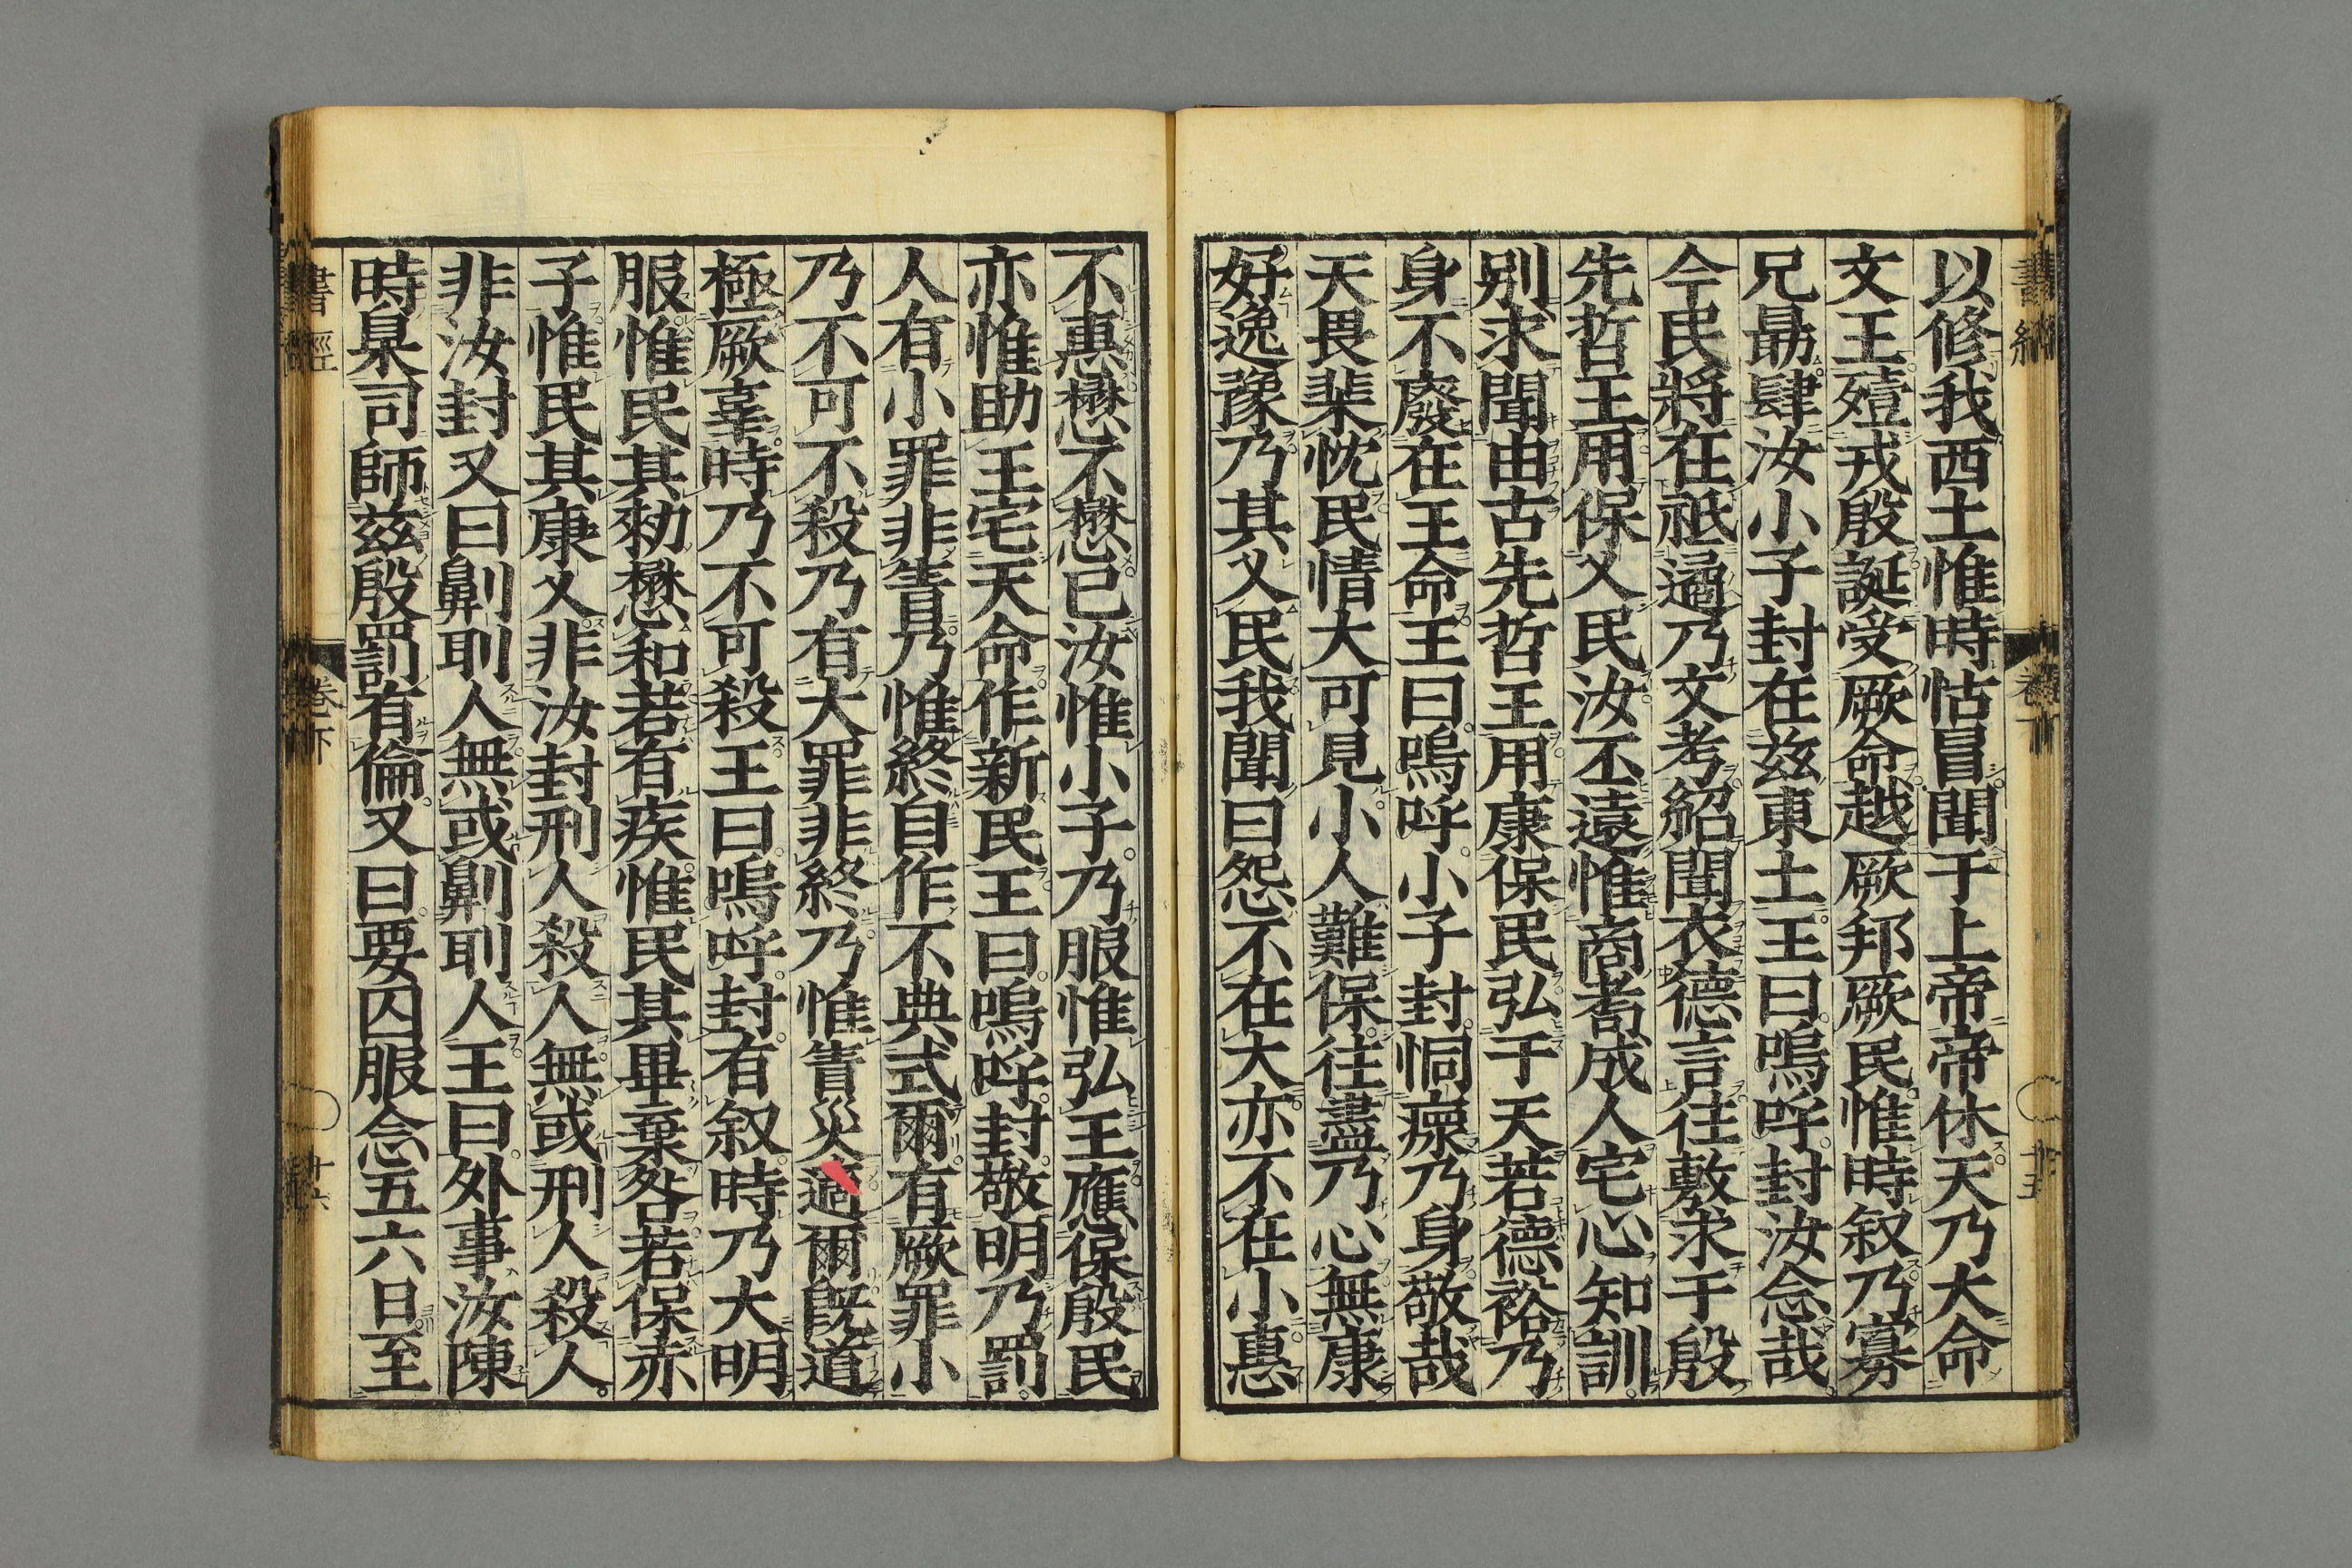 以修我西土惟時怙冒聞于上帝帝休天乃大命
文王殪戎殷誕受厥命越厥邦厥民惟時叙乃寡
兄勗肆汝小子封在兹東土王曰嗚呼封汝念哉
今民將在祗遹乃文考紹聞衣德言往敷求于殷
先哲王用保乂民汝丕遠惟商耉成人宅心知訓
别求聞由古先哲王用康保民弘于天若德裕乃
身不廢在王命王曰嗚呼小子封恫瘝乃身敬哉
天畏棐忱民情大可見小人難保往盡乃心無康
好逸豫乃其乂民我聞曰怨不在大亦不在小惠
不惠懋不懋已汝惟小子乃服惟弘王應保殷民
亦惟助王宅天命作新民王曰嗚呼封敬明乃罰
人有小罪非眚乃惟終自作不典式爾有厥罪小
乃不可不殺乃有大罪非終乃惟眚災適爾既道
極厥辜時乃不可殺王曰嗚呼封有叙時乃大明
服惟民其勑懋和若有疾惟民其畢棄咎若保赤
子惟民其康乂非汝封刑人殺人無或刑人殺人
非汝封又曰劓刵人無或劓刵人王曰外事汝陳
時臬司師兹殷罰有倫又曰要囚服念五六日至
書經
卷下